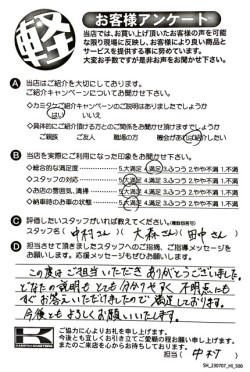 軽
お客様アンケート
当店では、お買い上げ頂いたお客様の声を可能
な限り現場に反映し、お客様により良い商品と
サービスを提供する事に努めています。
大変お手数ですが是非お声をお聞かせ下さい。
A 当店はご紹介を大切にしております。
ご紹介キャンペーンについてお聞かせ下さい。
◇カミタケご紹介キャンペーンのご説明はありましたでしょうか
はい いいえ
◇具体的にご紹介頂ける方とのご関係をお聞かせ頂けますでしょうか
ご親族 ご友人 職場の方 機会があれば紹介したい
B 当店を実際にご利用になった印象をお聞かせ下さい。
◇総合的な満足度 5.大満足 4.満足 3.ふつう 2.やや不満 1.不満
◇スタッフの対応 5.大満足 4.満足 3.ふつう 2.やや不満 1.不満
◇お店の雰囲気、清掃 5.大満足 4.満足 3.ふつう 2.やや不満 1.不満
◇納車時のお車の状態 5.大満足 4.満足 3.ふつう 2.やや不満 1.不満
C 評価したいスタッフがいれば教えてください。(複数回答可)
スタッフ名 ( 中村さん )( 大森さん )( 田中さん )
D 担当させて頂きましたスタッフへのご指摘、ご指導メッセージを
お願いします。応援メッセージもぜひお願いします。
この度はご担当いただき ありがとうございました。
どなたの説明も とても 分かりやすく 不明点にも
すぐお答えいただけましたので 満足しております。
今後とも よろしくお願いいたします。
ご協力に心よりお礼を申し上げます。
今後とも宜しくお引き立てご愛顧の程お願い申し上げます。
またのご来店を心からお待ちしております。
担当 ( 中村 )
SH_230707_HI_500